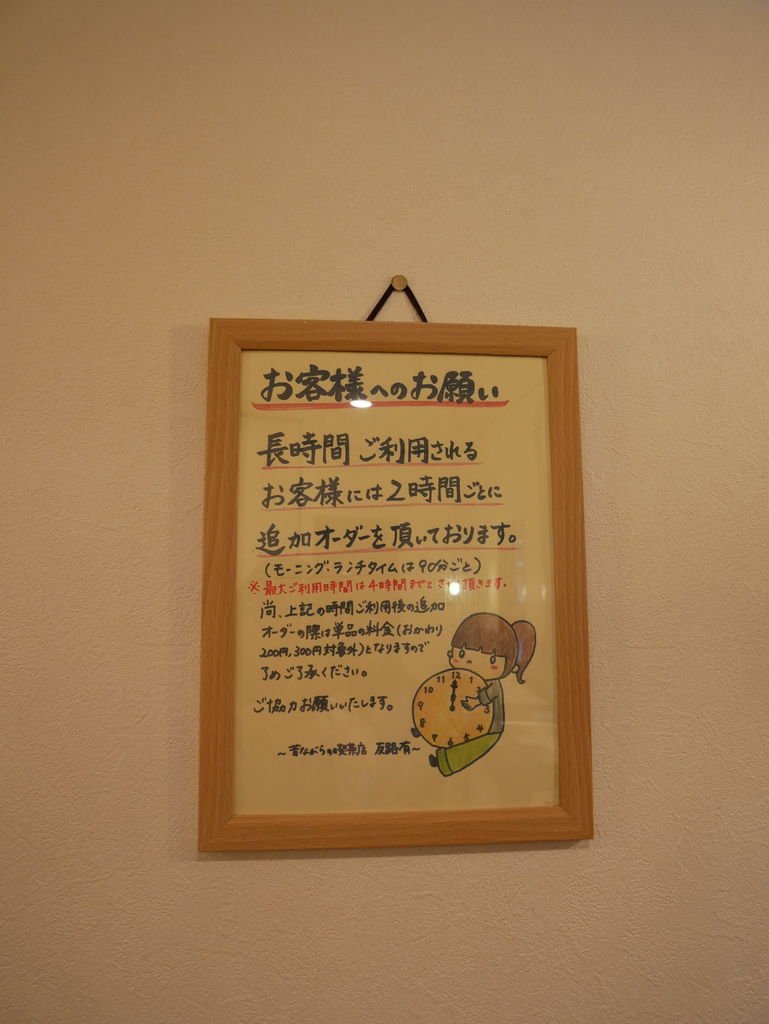 お客様へのお願い
長時間ご利用される
お客様には2時間ごとに
追加オーダーを頂いております。
(モーニング・ランチタイムは90分ごと)
※最大ご利用時間は4時間までとさせ頂きます。
尚、上記の時間ご利用後の追加
オーダーの際は単品の料金(おかわり
200円,300円対象外)となりますので
予めご了承ください。
ご協力お願いいたします。
～昔ながらの喫茶店 友路有～
11 12 1
10 2
9 3
8 4
7 6 5